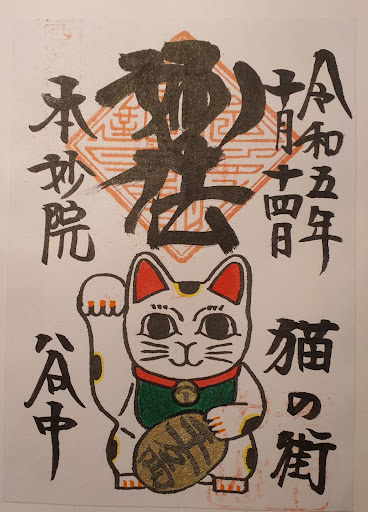 令和五年
十月十四日
妙法
本妙院
猫の街
谷中